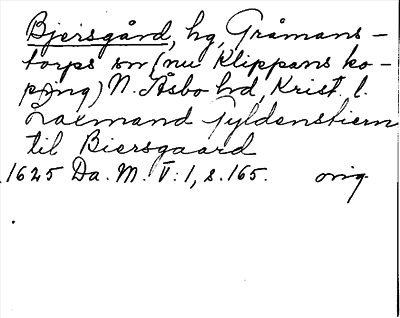 Bjersgård, hg, Gråmans-
torps sn (nu Klippans kö-
ping) N. Åsbo hd, Krist. l.
Laxmand Gyldenstiern
til Biersgaard
1625 Da. M. V: 1, s. 165. orig.